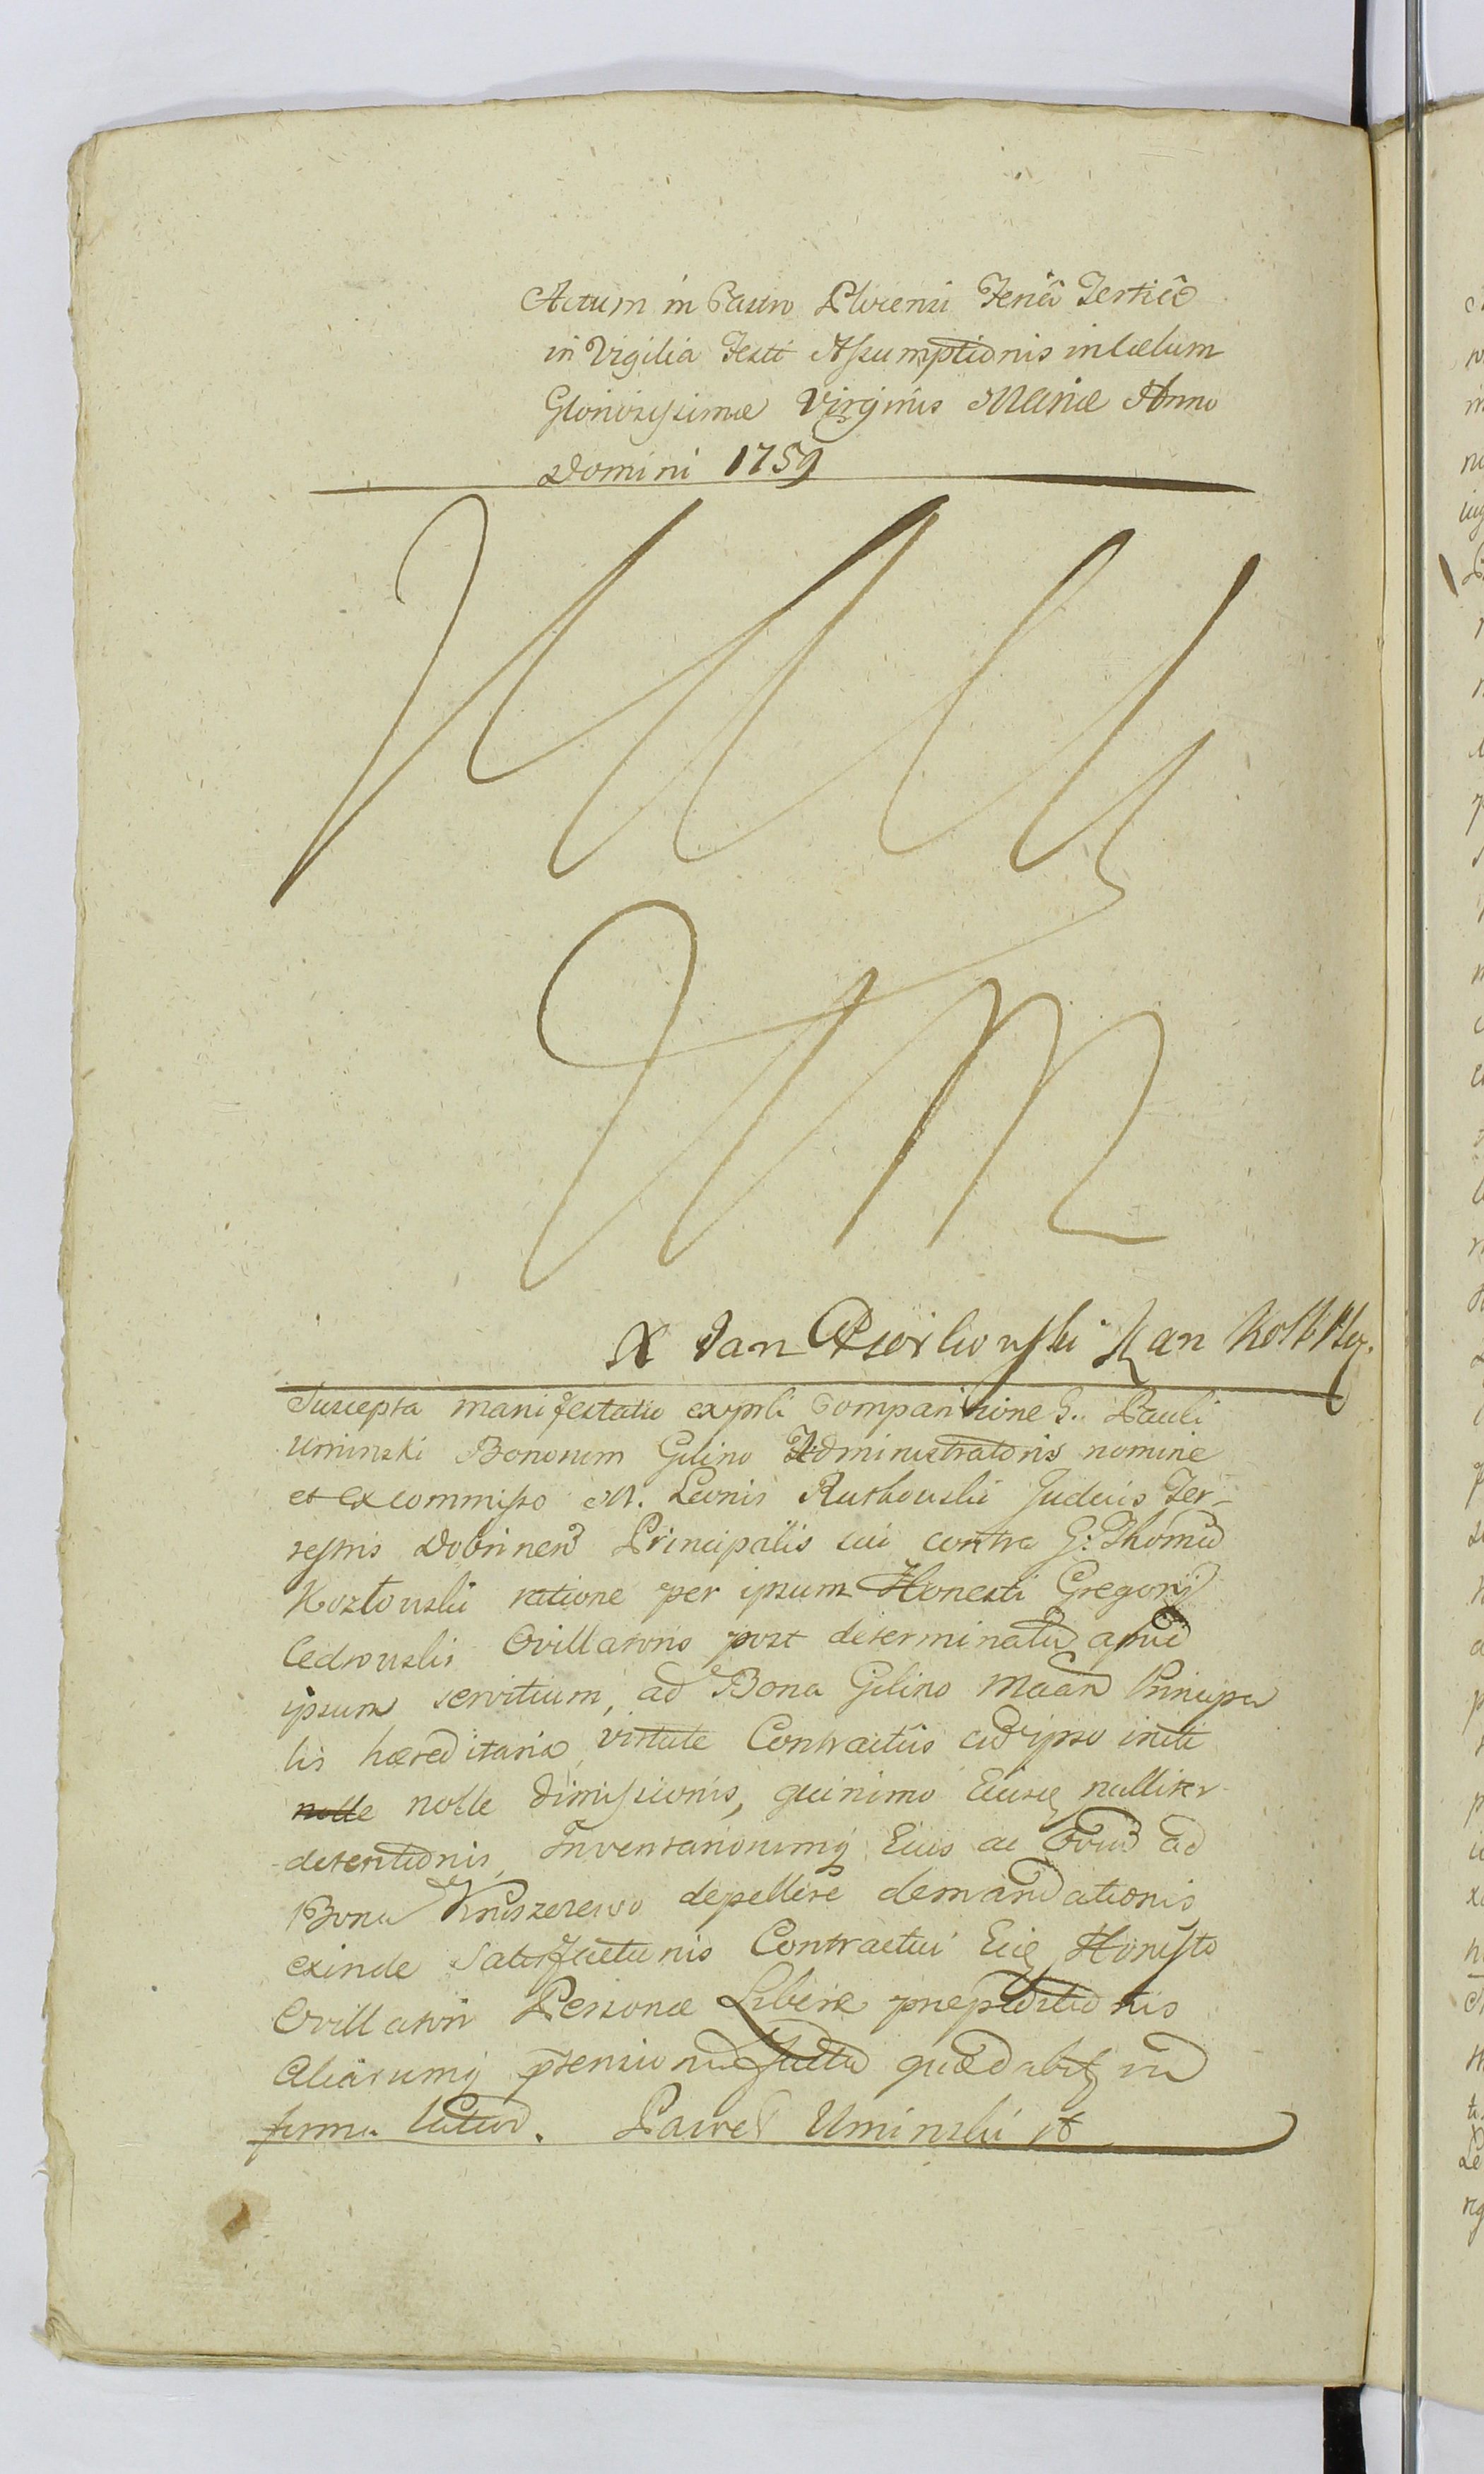 Actum in Castro Plocensi Feria Tertia
in Vigilia Festi Assumptionis in Cælum
Gloriosissimæ Virginis Mariæ Anno
Domini 1759
X Jan Kan
Suscepta manifestatio ex psli Comparitione G. Pauli
Uminski Bonorum Gilino Administratoris nomine
et ex commisso M. Leonis Rutkowski Judicis Ter-
restris Dobrinen Principalis sui contra G: Thomã
Kozłowski ratione per ipsum Honesti Gregorij
Cedrowski Ovillatoris post determinatũ apud
ipsum servitium, ad Bona Gilino Principa
lis hæreditaria virtute Contractûs cũ ipso initi
nolle nolle dimissionis, quinimo Eiusq nulliter
detentionis, Inventariorumq Eius ac Oviũ ad
Bona depellere demandationis
exinde Satisfactionis Contractui Eiq Honesto
Ovillatori Personæ Liberæ præpeditionis
Aliarumq prætensionũ quæ dabit̃ in
forma latiori. Paweł Uminski